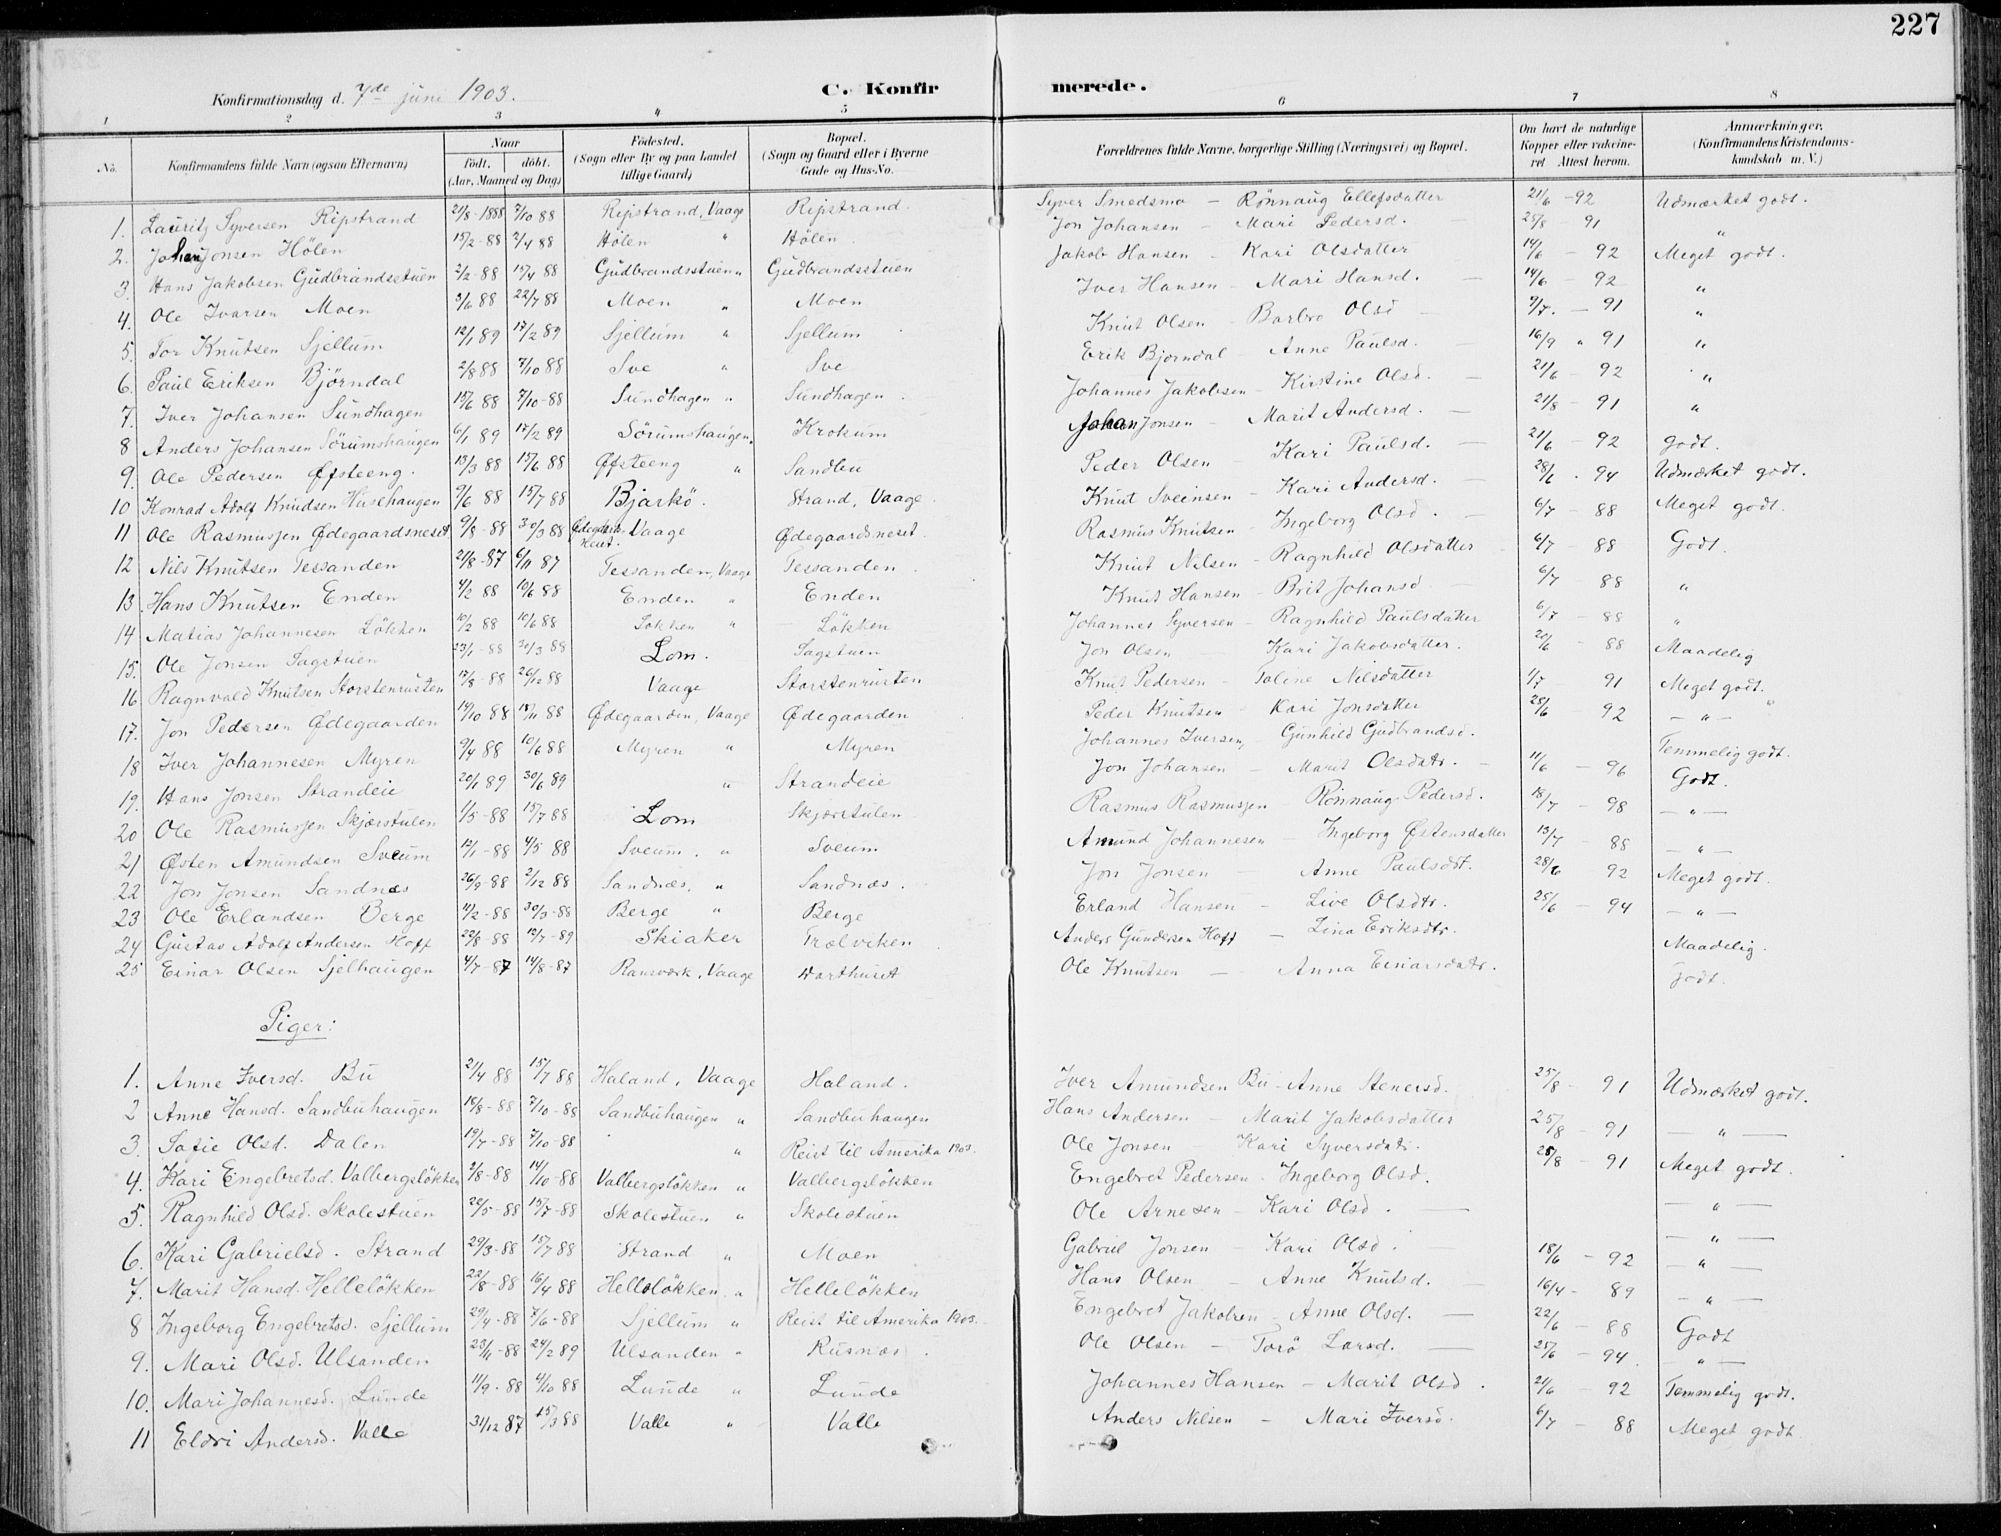 227
Konfirmationsdag d. 7de juni 1903. C. Konfirmerede.
1 2 3 4 5 6 7 8
No. Konfirmandens fulde Navn (ogsaa Efternavn) Naar født, døbt. (Aar, Maaned og Dag) Fødested. (Sogn eller By og paa Landet tillige Gaard) Bopæl. (Sogn og Gaard eller i Byerne Gade og Hus-No. Forældrenes fulde Navne, borgerlige Stilling (Næringsvei) og Bopæl. Om havt de naturlige Kopper eller vakcineret Attest herom. Anmærkninger. (Konfirmandens Kristendomskundskab m. V.)
1. Lauritz Syversen Ripstrand 21/8-1888 7/10 88 Ripstrand, Vaage Ripstrand. Syver Smedsmo – Rönnaug Ellefsdatter 21/6 -92 Udmærket godt.
2. Johan Jonsen Hölen 15/2-88 2/4 88 Hölen " Hölen. Jon Johansen – Mari Pedersd. – 25/8 – 91 "
3. Hans Jakobsen Gudbrandsstuen 2/2-88 15/4 88 Gudbrandsstuen " Gudbrandsstuen Jakob Hansen – Kari Olsdatter 14/6 – 92 Meget godt.
4. Ole Ivarsen Moen 3/6 88 22/7 88 Moen " Moen Iver Hansen – Mari Hansd. – 14/6 – 92 "
5. Tor Knutsen Sjellum 12/1 89 17/2 89 Sjellum " Sjellum Knut Olsen – Barbro Olsd – 9/7. – 91 "
6. Paul Eriksen Björndal 2/8 88 7/10 88 Sve " Sve Erik Bjorndal – Anne Paulsd. – 16/9 " 91 "
7. Iver Johansen Sundhagen 15/6 88 7/10-88 Sundhagen " Sundhagen. Johannes Jakobsen – Kirstine Olsd. – 21/6 – 92 "
8 Anders Johansen Sörumshaugen 6/1 89 17/2 89 Sörumshaugen " Krokum Johan Jonsen – Marit Andersd. – 21/8 – 91 "
9. Ole Pedersen Øfsteeng. 13/3 88 15/6 88 Øfsteeng " Sandbu Peder Olsen – Kari Paulsd. – 21/6 – 92 Godt.
10 Konrad Adolf Knudsen Huslhaugen 9/6 88 15/7 88 Bjarkö. Strand, Vaage. Knut Sveinsen – Kari Andersd. – 28/6 . 94 Udmærket godt.
11 Ole Rasmussen Ødegaardsneset 9/3-88 30/3 88 Vaage Ødegaardsneset. Rasmus Knutsen – Ingeborg Olsd. – 6/7 – 88 Meget godt.
12 Nils Knutsen Tessanden 21/8-87 6/11 87 Tessanden, Vaage Tessanden. Knut Nilsen – Ragnhild Olsdatter 6/7 – 88 Godt.
13 Hans Knutsen Enden 4/2 88 10/6 88 Enden " Enden Knut Hansen – Brit Johansd – 6/7 – 88 "
14 Matias Johannesen Lökken 10/2 88 10/6 88 Lökken " – Lökken Johannes Syversen – Ragnhild Paulsdatter 6/7 – 88 "
15. Ole Jonsen Sagstuen 23/1-88 30/3 88 Lom. Sagstuen Jon Olsen – Kari Jakobsdatter. 20/6 88 Maadelig
16 Ragnvald Knutsen Storstenrusten 17/8-88 26/12 88 Vaage Storstenrusten Knut Pedersen – Toline Nilsdatter 1/7 – 91 Meget godt.
17. Jon Pedersen Ødegaarden 14/10 88 18/11 88 Ødegaarden, Vaage Ødegaarden Peder Knutsen – Kari Jonsdatter 25/6 – 92 – " –
18 Iver Johannesen Myren 9/4 88 10/6 88 Myren " Myren Johannes Iversen, Gunhild Gudbrandsd. Temmelig godt.
19. Hans Jonsen Strandeie 20/1 89 30/6 89 " Strandeie Jon Johansen – Marit Olsdatr. – 11/6 – 96 Godt.
20 Ole Rasmussen Skjærstulen 1/5-88 15/7 88 Lom Skjærstulen Rasmus Rasmussen – Rönnaug Pedersd. 18/7 – 98 – " –
21 Østen Amundsen Sveum 12/1-88 4/5 88 Sveum. " Sveum Amund Johannesen – Ingeborg Østensdatter 13/7 – 88 – " –
22 Jon Jonsen Sandnæs 26/9-88 2/12 88 Sandnæs, " Sandnæs. Jon Jonsen – Anne Paulsdt. 28/6 92 Meget godt.
23 Ole Erlandsen Berge 11/2-88 30/3-88 Berge " Berge Erland Hansen – Live Olsdtr. 25/6 – 94 – " –
24 Gustav Adolf Andersen Hoff 22/8-88 12/7-89 Skiaker Trælviken. Anders Gundersen Hoff – Lina Eriksdtr. Maadelig.
25 Einar Olsen Sjelhaugen 4/7-87 14/8-87 Ransverk, Vaage Varthuset Ole Knutsen – Anna Einarsdatr. Godt.
Piger:
1. Anne Iversd. Bu 21/4 88 15/7 88 Haland, Vaage Haland. Iver Amundsen Bu – Anne Stenersd. 25/8 – 91 Udmærket godt.
2 Anne Hansd. Sandbuhaugen 16/8-88 7/10-88 Sandbuhaugen " Sandbuhaugen Hans Andersen – Marit Jakobsdatter 25/8 – 91 – " –
3. Sofie Olsd. Dalen 19/7-88 7/10-88 " Reist til Amerika 1903. Ole Jonsen Kari Syversdatr. 25/8 – 91 Meget godt.
4. Kari Engebretsd. Valbergslökken 2/8-88 14/10-88 Valbergslökken " Valbergslökken Engebret Pedersen – Ingeborg Olsd.
5. Ragnhild Olsd. Skolestuen 20/5-88 15/7-88 Skolestuen " Skolestuen Ole Arnesen – Kari Olsd. – – " –
6. Kari Gabrielsd. Strand 29/3-88 15/7 88 Strand " Moen Gabriel Jonsen – Kari Olsd. – 18/6 – 92 – " –
7. Marit Hansd. Hellelökken 22/8-88 16/4 88 Hellelökken. " Hellelökken Hans Olsen – Anne Knutsd. – 16/4 – 89 – " –
8 Ingeborg Engebretsd. Sjellum 29/4-88 7/6-88 Sjellum " Reist til Amerika 1903. Engebret Jakobsen – Anne Olsd. – 22/6 – 88 – " –
9. Mari Olsd. Ulsanden 23/11-88 24/2 89 Ulsanden " Rusnæs. Ole Olsen – Torö Larsd. – 25/6 – 94. Godt
10. Mari Johannesd. Lunde 11/9-88 4/10 88 Lunde " Lunde Johannes Hansen – Marit Olsd. 21/6 92 Temmelig godt.
11 Eldri Andersd. Valle 31/12 87 15/3 88 Valle " Valle Anders Nilsen – Mari Iversd. 6/7 – 88 Meget godt.